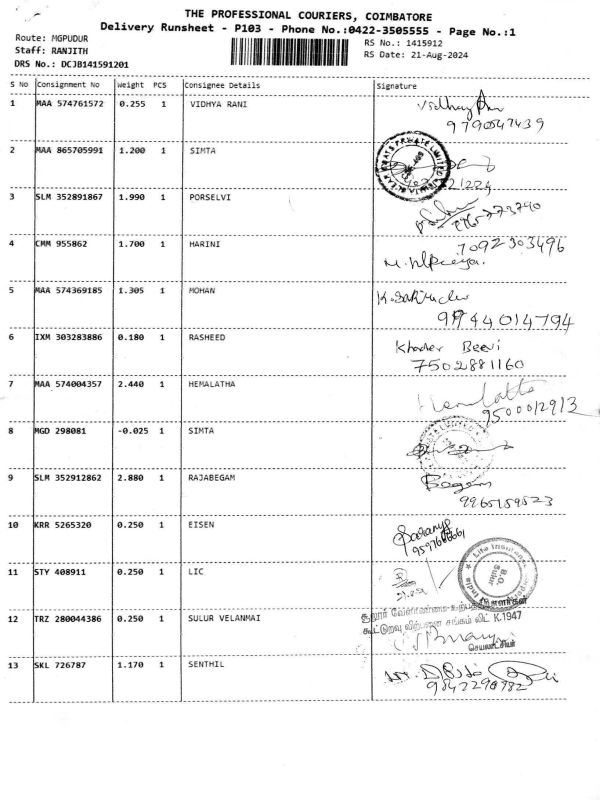 THE PROFESSIONAL COURIERS, COIMBATORE
Delivery Runsheet - P103 - Phone No.:0422-3505555 - Page No.:1
Route: MGPUDUR
RS No.: 1415912
Staff: RANJITH
RS Date: 21-Aug-2024
DRS No.: DCJB141591201
S No Consignment No Weight PCS Consignee Details Signature
1 MAA 574761572 0.255 1 VIDHYA RANI
9790547439
2 MAA 865705991 1.200 1 SIMTA
3 SLM 352891867 1.990 1 PORSELVI
4 CMM 955862 1.700 1 HARINI 7092303496
5 MAA 574369185 1.305 1 MOHAN
9944014794
6 IXM 303283886 0.180 1 RASHEED Khader Beevi
7502881160
7 MAA 574004357 2.440 1 HEMALATHA Hemlatta
9500012913
8 MGD 298081 -0.025 1 SIMTA
9 SLM 352912862 2.880 1 RAJABEGAM Begam
9965189523
10 KRR 5265320 0.250 1 EISEN Saranya
11 STY 408911 0.250 1 LIC
Life Insurance
B.O.
Sulur
12 TRZ 280044386 0.250 1 SULUR VELANMAI
சூலூர் வேளாண்மை உற்பத்தியாளர்கள்
கூட்டுறவு விற்பனை சங்கம் லிட் K.1947
செயலாட்சியர்
13 SKL 726787 1.170 1 SENTHIL
9842298982